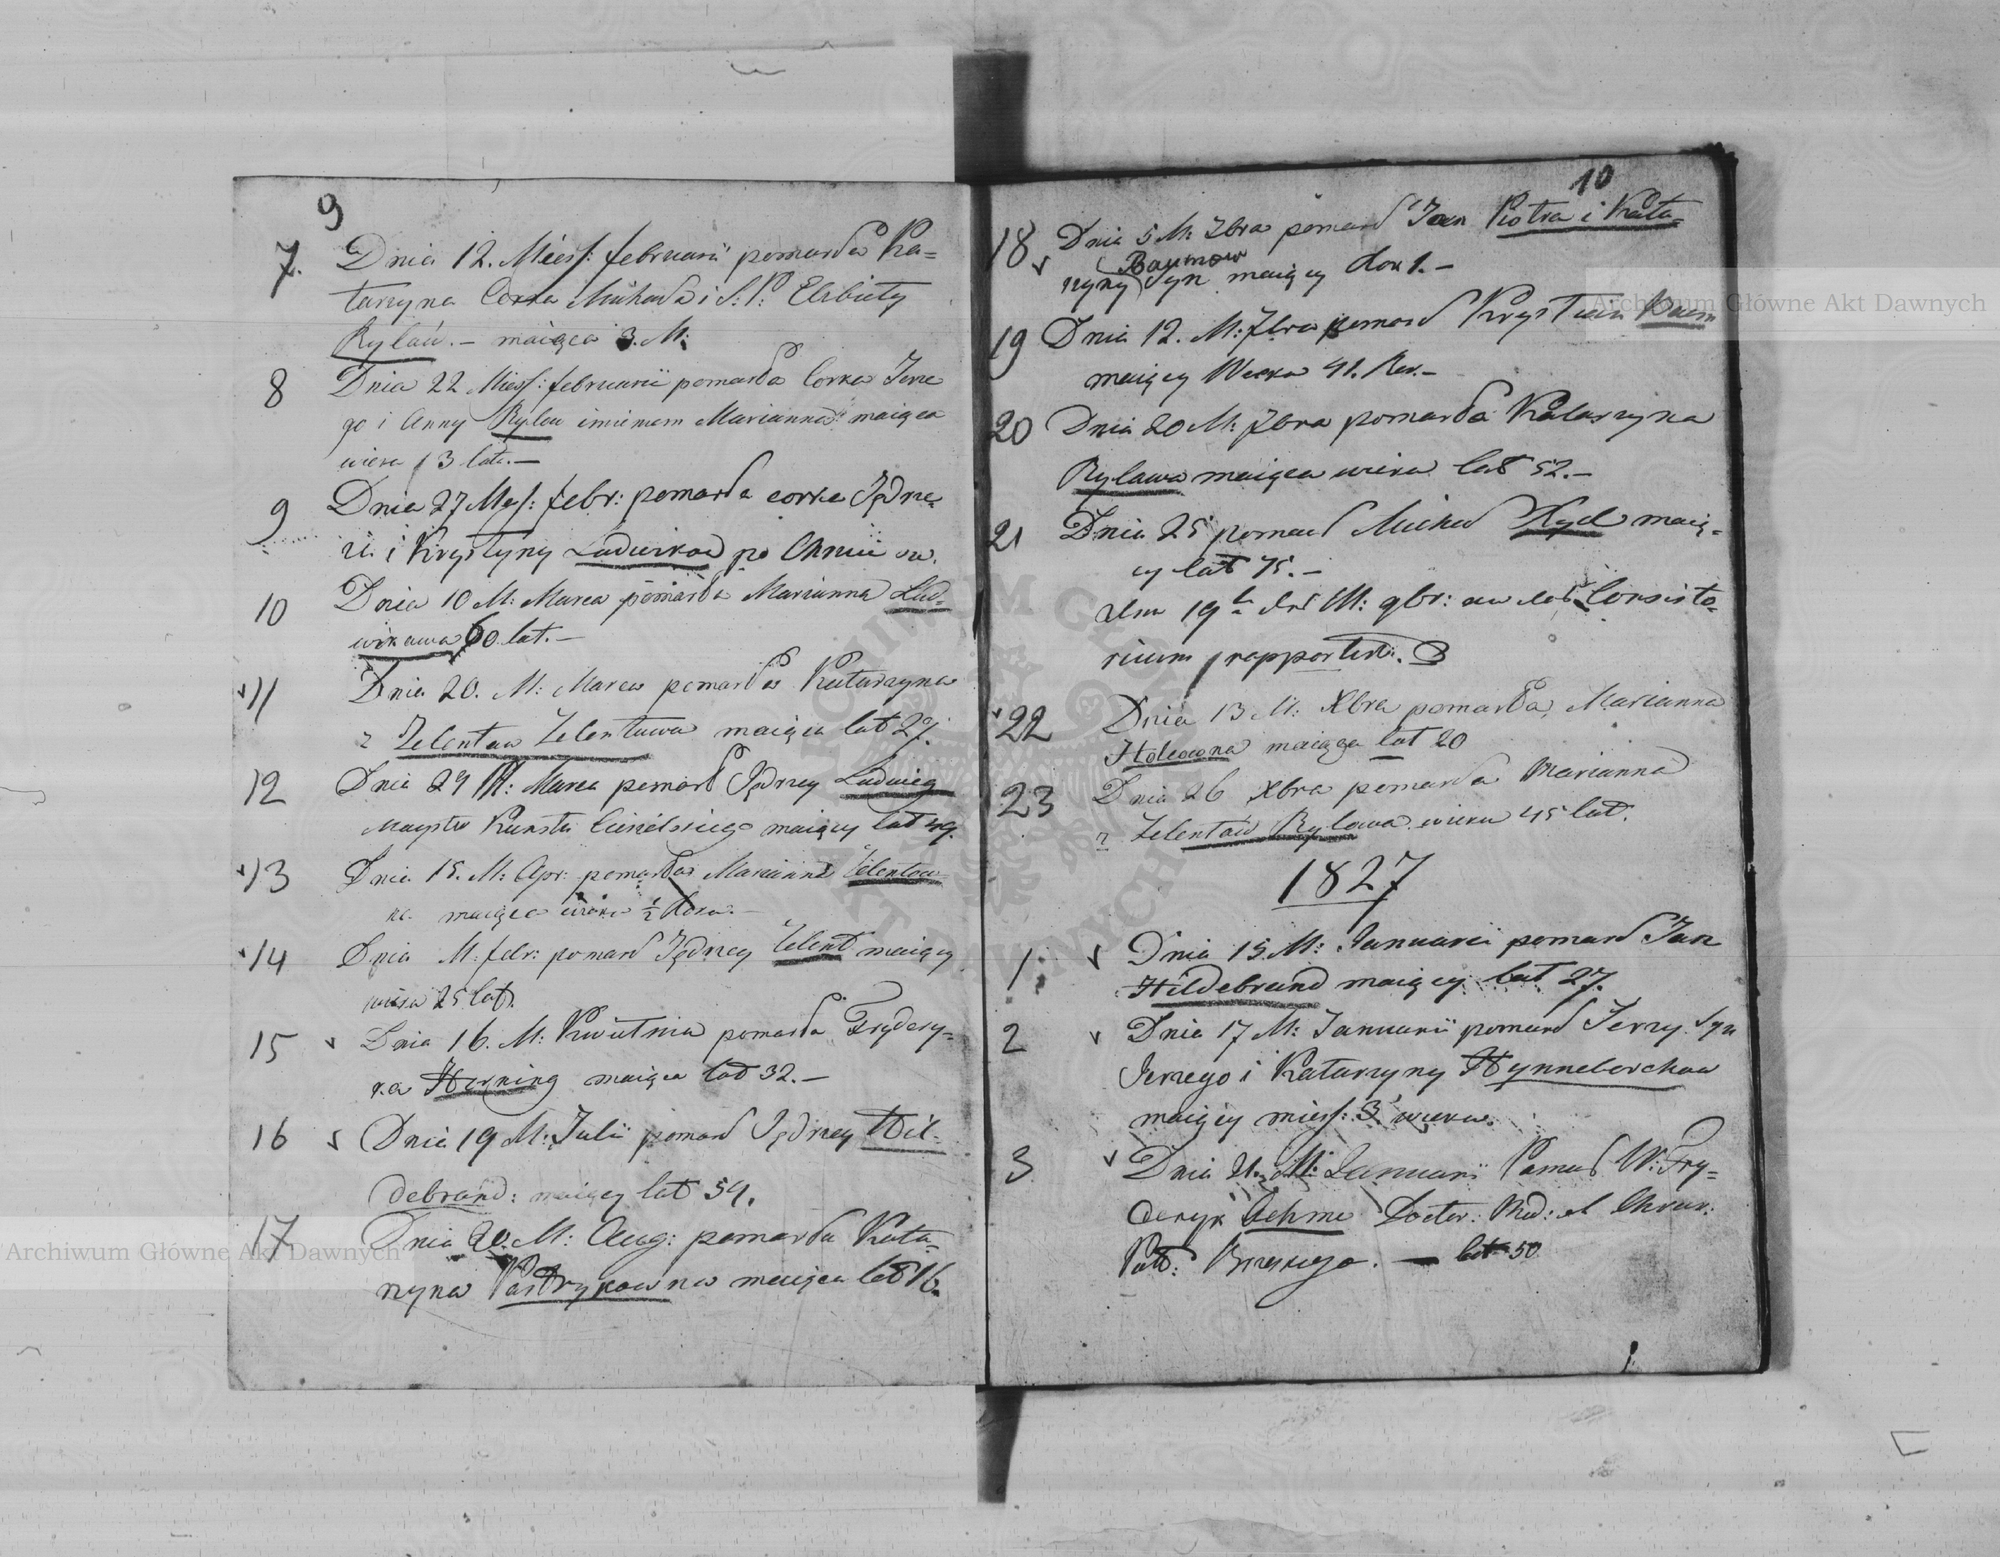 9
7. Dnia 12. Miess: februarii pomarła Ka=
tarzyna Corka Michała i S: P: Elzbiety
Rylaú. – maiąca 3. M:
8 Dnia 22 Miess: februarii pomarła Corka Jerze
go i Anny Rylow imieniem Marianna maiąca
wieku 3 lata. —
9 Dnia 27 Mies: febr: pomarła corka Jędrze
ia i Krystyny Ludwikow po
10 Dnia 10 M: Marca pomarła Marianna Lud-
wikawa 60 lat. —
11 Dnia 20. M: Marca pomarła Katarzyna
z Zelentow Zelentawa maiąca lat 27.
12 Dnia 29 M: Marca pomarł Jędrzey Ludwig
Maystr Kunsztu maiący lat 49.
13 Dnia 15. M: Apr: pomarła Marianna Zelentow
na maiąca wieku ½ Roku. —
14 Dnia M: febr: pomarł Jędrzey Zelent maiący
wieku 25 lat.
15 Dnia 16. M: Kwietnia pomarła Frydery=
ka Horning maiąca lat 32. —
16 Dnia 19 M: Julii pomarł Jędrzey Hil-
debrand: maiący lat 54.
17 Dnia 20. M: Aug: pomarła Kata-
rzyna Pastrykowna maiąca lat 16.
10
18 Dnia 5 M: 7bra pomarł Jan Piotra i Kata=
rzyny Baumow Syn maiący Rok 1. –
19 Dnia 12. M: 7bra pomarł Krystian Baum
maiący Wieku 41. Rok. –
20 Dnia 20 M: 7bra pomarła Katarzyna
Rylawa maiąca wieku lat 52. –
21 Dnia 25 pomarł Michał Ryl maią-
cy lat 75. –
19 M: 9br: Consisto-
rium rapport
22 Dnia 13 M: Xbra pomarła Marianna
maiąca lat 20
23 Dnia 26 Xbra pomarła Marianna
z Zelentow Rylawa wieku 45 lat.
1827
1 Dnia 15 M: Januarii pomarł Jan
Hildebrand maiący lat 27.
2 Dnia 17 M: Januarii pomarł Jerzy Syn
Jerzego i Katarzyny Hynneborchow
maiący miess: 3 wieku.
3 Dnia 21. M: Januarii Pomarł W: Fry=
deryk Oehme Doctor: Med: et Chirur:
lat 50
Archiwum Główne Akt Dawnych
Archiwum Główne Akt Dawnych